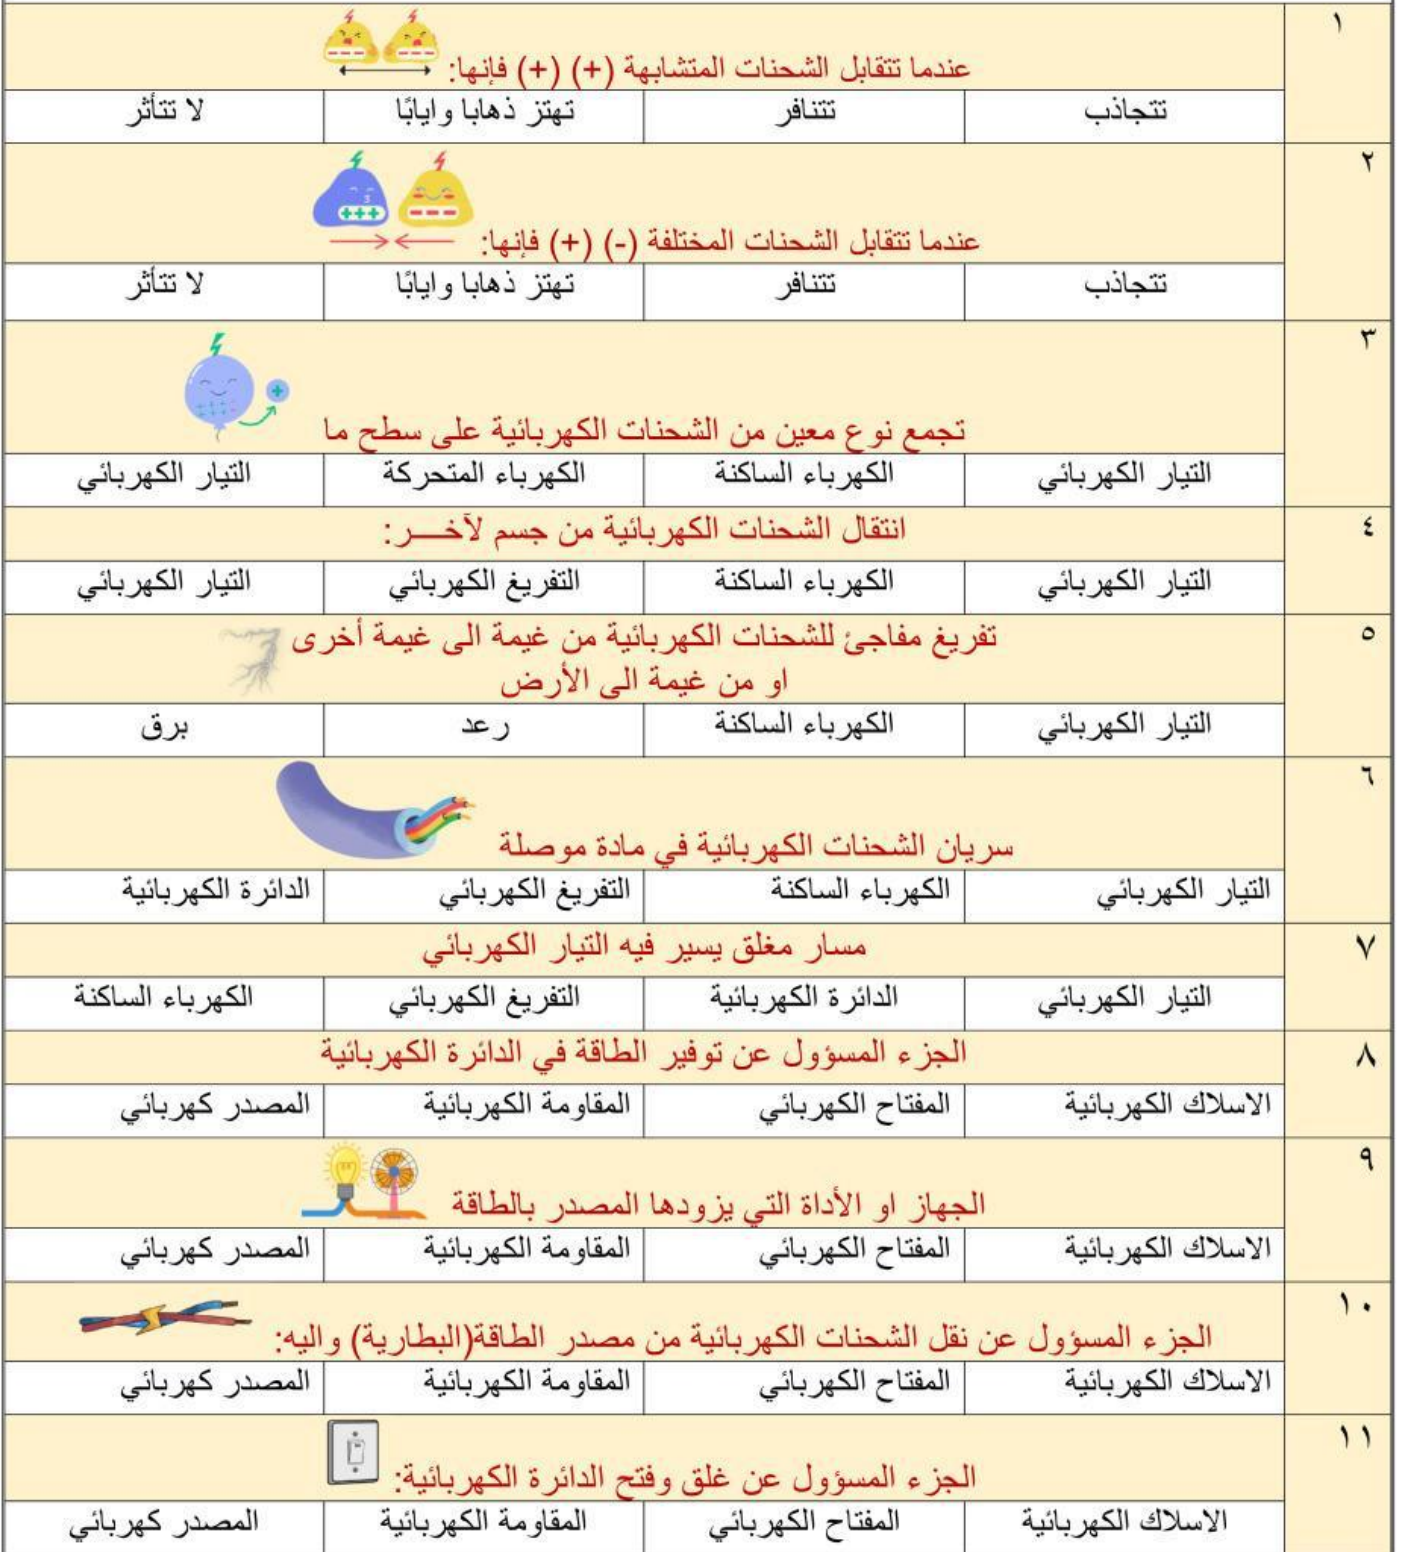 ١
عندما تتقابل الشحنات المتشابهة (+) (+) فإنها:
تتجاذب تتنافر تهتز ذهابا وايابًا لا تتأثر
٢
عندما تتقابل الشحنات المختلفة (-) (+) فإنها:
تتجاذب تتنافر تهتز ذهابا وايابًا لا تتأثر
٣
تجمع نوع معين من الشحنات الكهربائية على سطح ما
التيار الكهربائي الكهرباء الساكنة الكهرباء المتحركة التيار الكهربائي
٤
انتقال الشحنات الكهربائية من جسم لآخـــر:
التيار الكهربائي الكهرباء الساكنة التفريغ الكهربائي التيار الكهربائي
٥
تفريغ مفاجئ للشحنات الكهربائية من غيمة الى غيمة أخرى
او من غيمة الى الأرض
التيار الكهربائي الكهرباء الساكنة رعد برق
٦
سريان الشحنات الكهربائية في مادة موصلة
التيار الكهربائي الكهرباء الساكنة التفريغ الكهربائي الدائرة الكهربائية
٧
مسار مغلق يسير فيه التيار الكهربائي
التيار الكهربائي الدائرة الكهربائية التفريغ الكهربائي الكهرباء الساكنة
٨
الجزء المسؤول عن توفير الطاقة في الدائرة الكهربائية
الاسلاك الكهربائية المفتاح الكهربائي المقاومة الكهربائية المصدر كهربائي
٩
الجهاز او الأداة التي يزودها المصدر بالطاقة
الاسلاك الكهربائية المفتاح الكهربائي المقاومة الكهربائية المصدر كهربائي
١٠
الجزء المسؤول عن نقل الشحنات الكهربائية من مصدر الطاقة(البطارية) واليه:
الاسلاك الكهربائية المفتاح الكهربائي المقاومة الكهربائية المصدر كهربائي
١١
الجزء المسؤول عن غلق وفتح الدائرة الكهربائية:
الاسلاك الكهربائية المفتاح الكهربائي المقاومة الكهربائية المصدر كهربائي